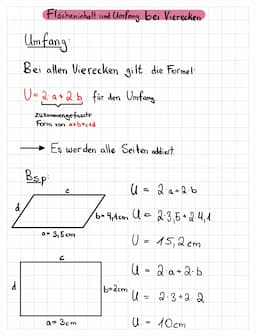 Flächeninhalt und Umfang bei Vierecken
Umfang:
Bei allen Vierecken gilt die Formel:
U = 2·a+2·b für den Umfang
zusammengefasste
Form von a+b+c+d
→ Es werden alle Seiten addiert.
Bsp:
c
d
b = 4,1cm
a = 3,5cm
U = 2·a+2·b
U = 2·3,5+2·4,1
U = 15,2cm
c
d
b=2cm
a = 3cm
U = 2·a+2·b
U = 2·3+2·2
U = 10cm